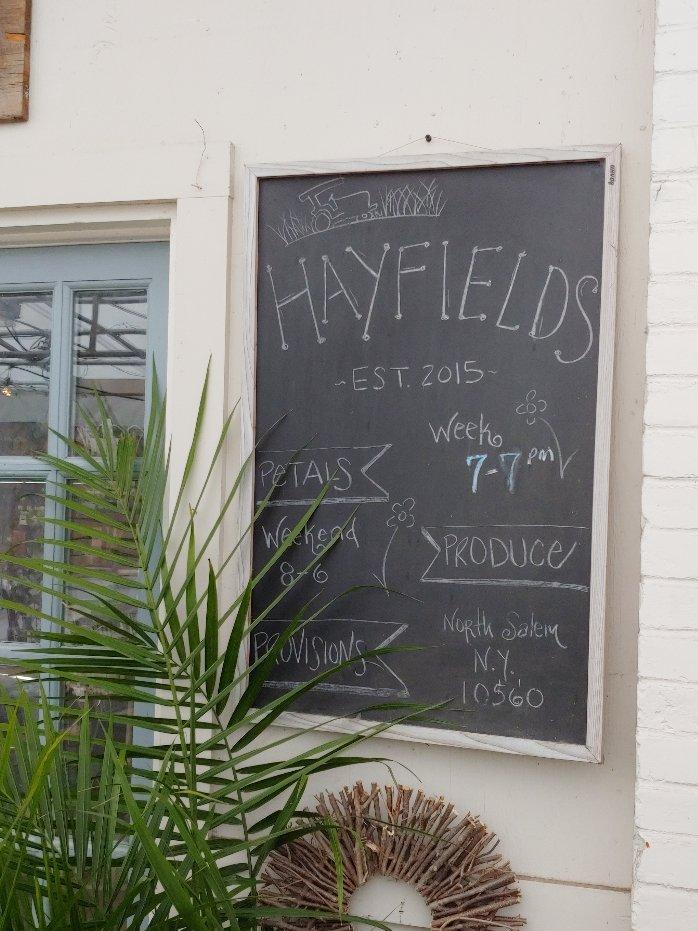 HAYFIELDS
~EST. 2015~
Week
7-7 pm
PETALS
Weekend
8-6
PRODUCE
PROVISIONS
North Salem
N.Y.
10560